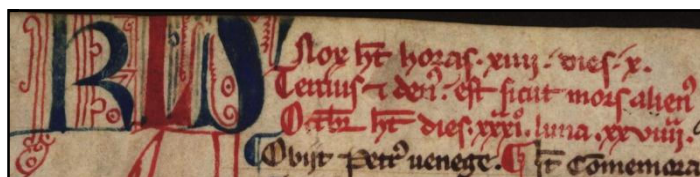 KLD Nox ht horas · xiiii · dies · x ·
Tercius ⁊ den9 : est sicut mors alien9
Octbr ht dies · xxxi · luna · xxviiii ·
Obijt Petr9 uenege · ht Comemora